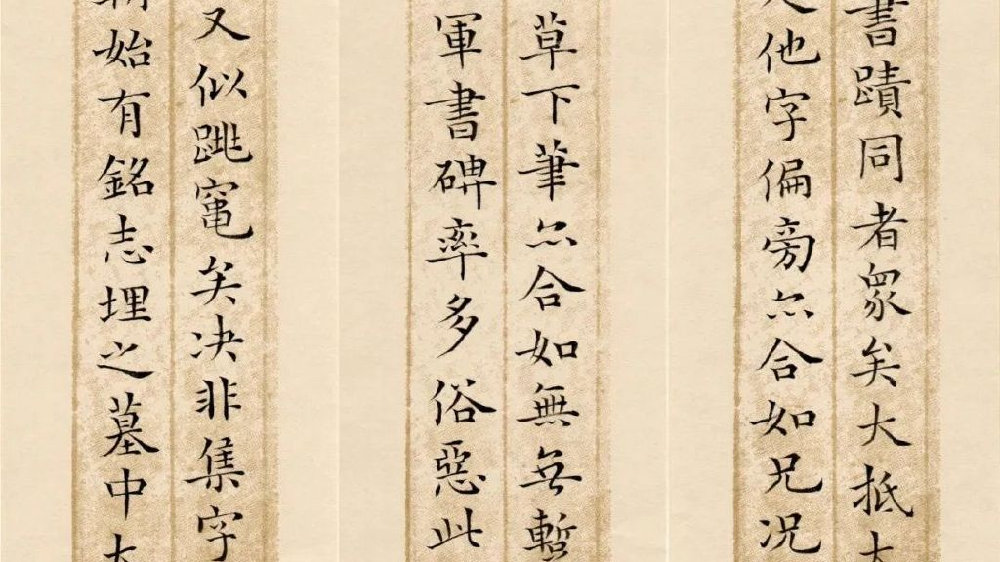 書蹟同者眾矣大抵大
他字偏旁亦合如兄况
草下筆亦合如無無暫
軍書碑率多俗惡此
又似跳竄矣决非集字
始有銘志埋之墓中大